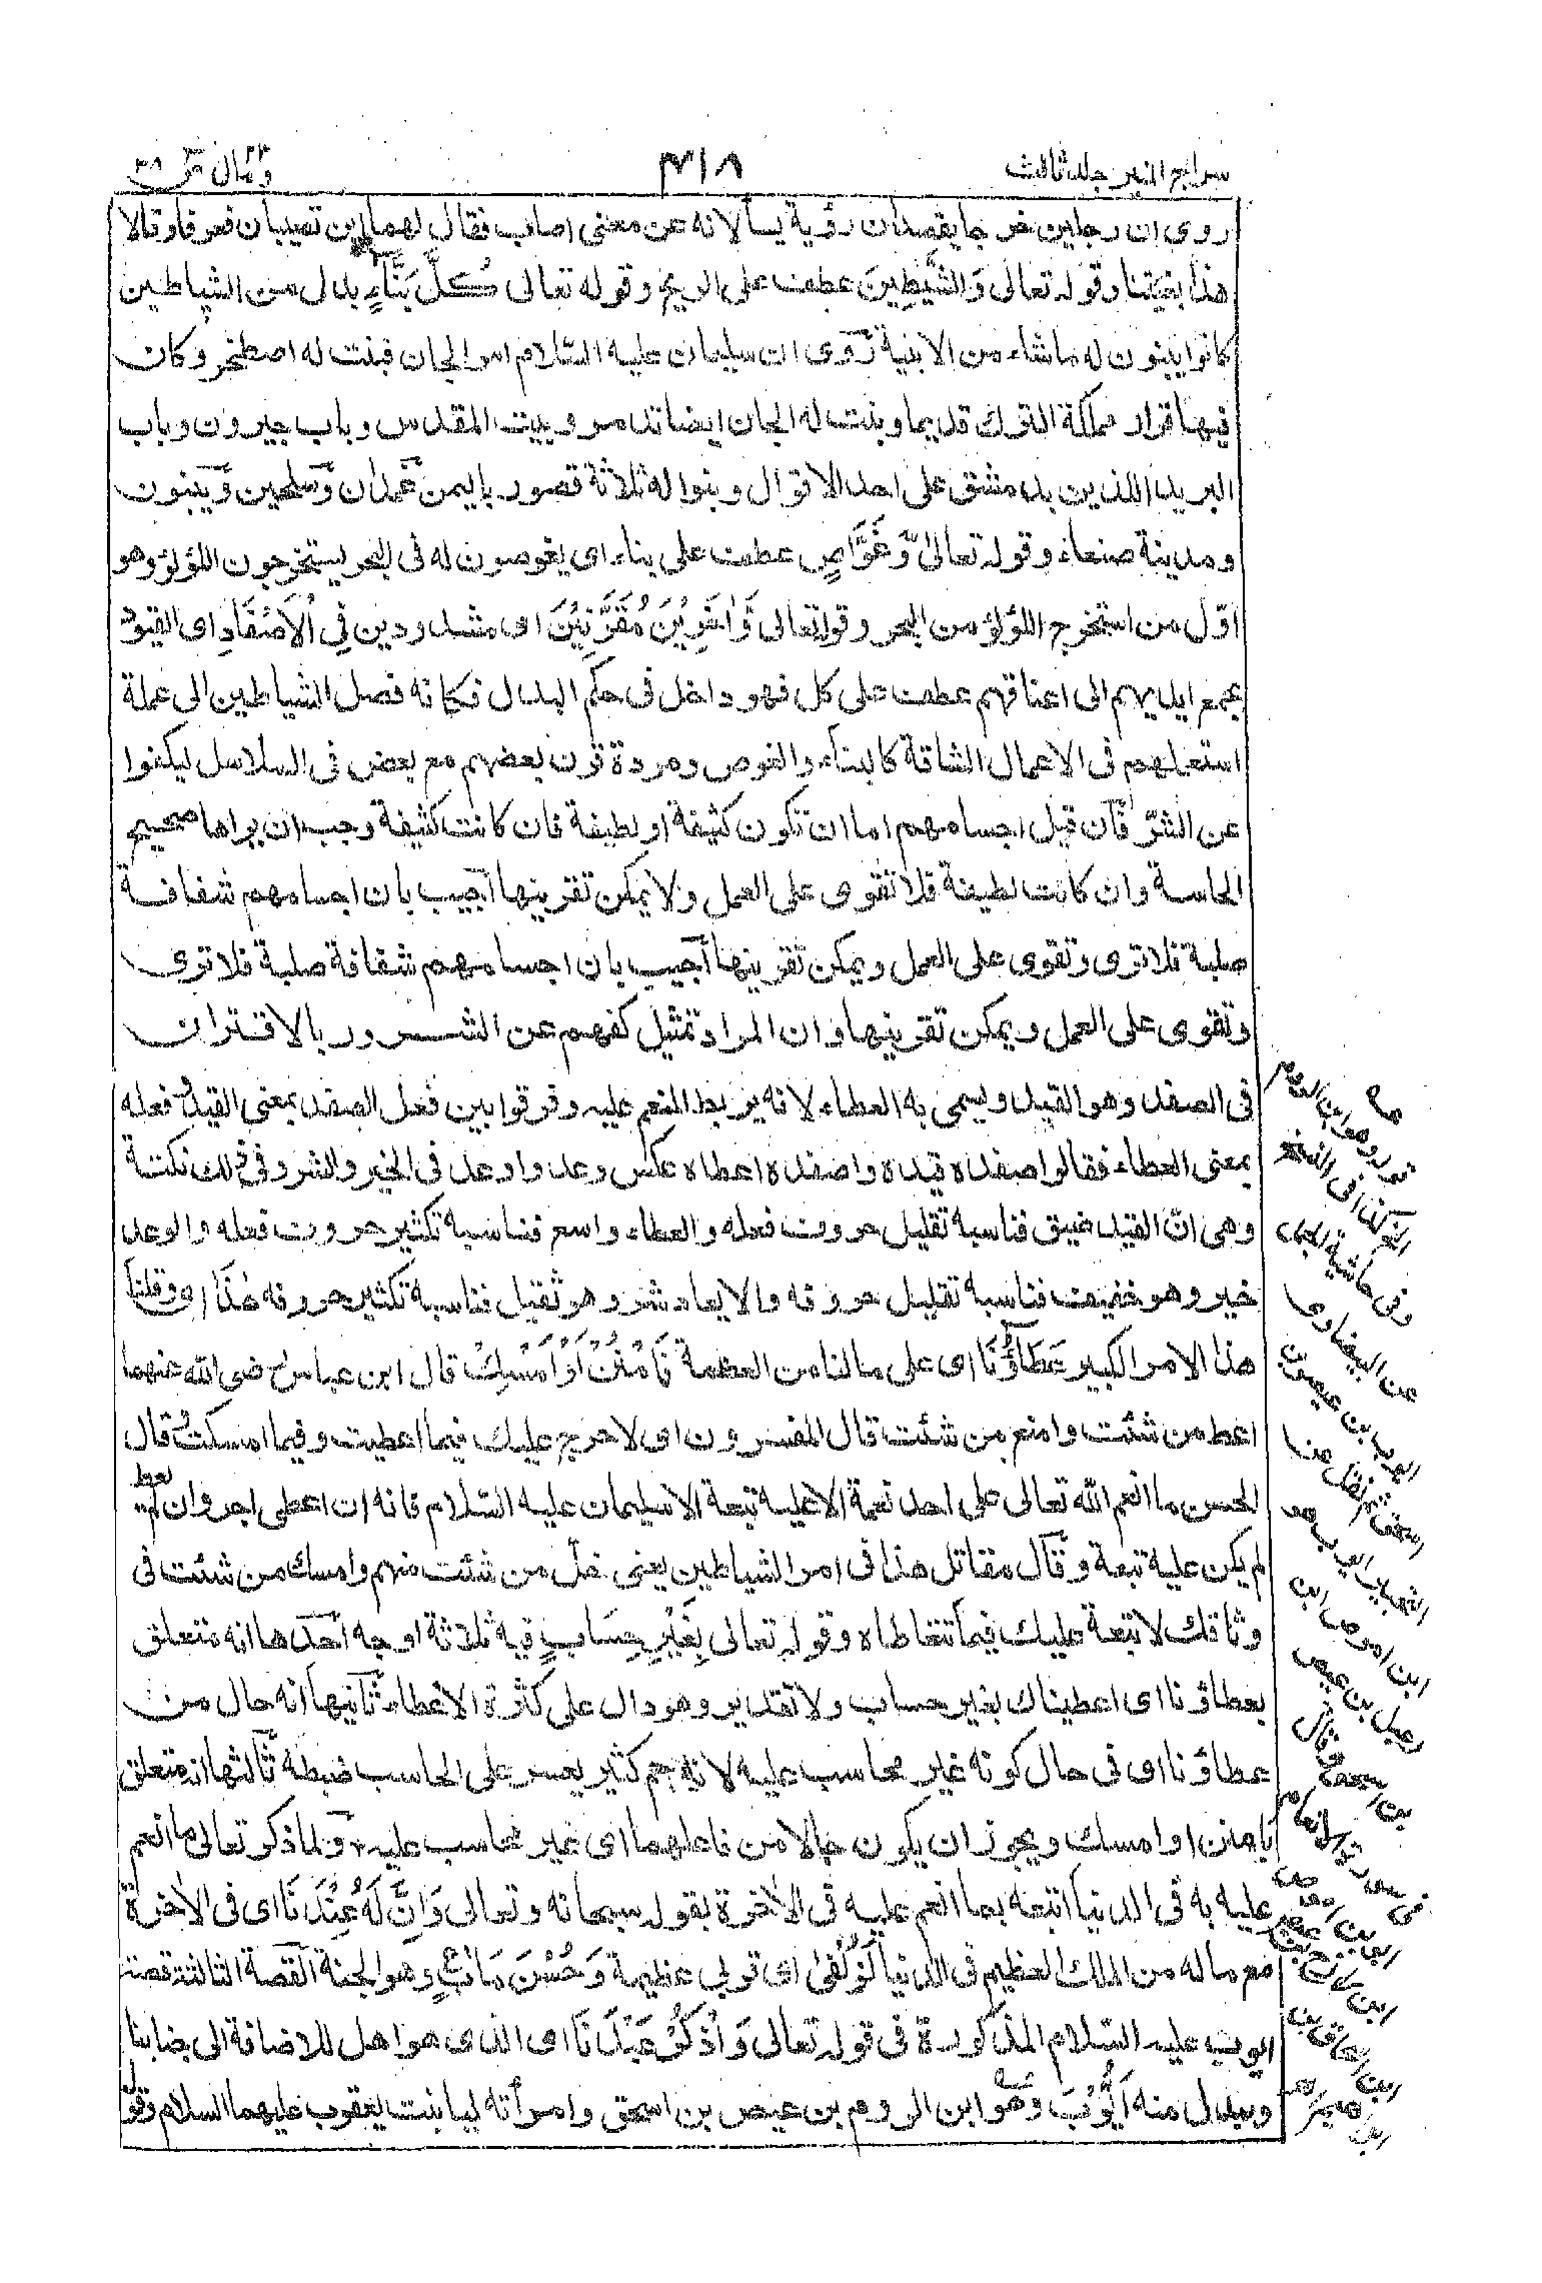 سراج المنير جلد ثالث
٤١٨
ومالى ٢٣ ص ٣٨
روى ان رجلين خرجا يقصدان رؤية يسألانه عن معنى اصاب فقال لهما اين تصيبان فعرفا وقالا
هذا بغيتنا وقوله تعالى وَالشَّيٰطِينَ عطف على الريح وقوله تعالى كُلَّ بَنَّآءٍ بدل من الشياطين
كانوا يبنون له ماشاء من الابنية رُوى ان سليمان عليه السّلام امر الجان فبنت له اصطخر وكان
فيها قرار مملكة الترك قديما وبنت له الجان ايضا تدمر وبيت المقدس وباب جيرون وباب
البريد اللذين بدمشق على احد الاقوال وبنوا له ثلاثة قصور باليمن غمدان وسلحين وبينون
ومدينة صنعاء وقوله تعالىٰ وَّغَوَّاصٍ عطف على بناء اى يغوصون له فى البحر يستخرجون اللؤلؤ وهو
اوّل من استخرج اللؤلؤ من البحر وقوله تعالى وَّاٰخَرِيْنَ مُقَرَّنِيْنَ اى مشدودين فِى الْاَصْفَادِ اى القيود
بجمع ايديهم الى اعناقهم عطف على كل فهو داخل فى حكم البدل فكانه فصل الشياطين الى عملة
استعملهم فى الاعمال الشاقة كالبناء والغوص ومردة قرن بعضهم مع بعض فى السلاسل ليكفوا
عن الشرّ فان قيل اجسامهم اما ان تكون كثيفة او لطيفة فان كانت كثيفة وجب ان يراها صحيح
الحاسة وان كانت لطيفة فلا تقوى على العمل ولا يمكن تقرينها اُجيب بان اجسامهم شفافة
صلبة فلا ترى وتقوى على العمل ويمكن تقرينها اُجيب بان اجسامهم شفافة صلبة فلا ترى
وتقوى على العمل ويمكن تقرينها وان المراد تمثيل كفهم عن الشرور بالاقتران
فى الصفد وهو القيد ويسمى به العطاء لانه يربط المنعم عليه وفرقوا بين فعل الصفد بمعنى القيد وفعله
بمعنى العطاء فقالوا صفده قيده واصفده اعطاه عكس وعد واوعد فى الخير والشر وفى ذلك نكتة
وهى انّ القيد ضيق فناسبه تقليل حروف فعله والعطاء واسع فناسبه تكثير حروف فعله والوعد
خير وهو خفيف فناسبه تقليل حروفه والايعاد شر وهو ثقيل فناسبه تكثير حروفه هٰذَا اى وقلنا
هذا الامر الكبير عَطَآؤُنَا اى على مالنا من العظمة فَامْنُنْ اَوْ اَمْسِكْ قال ابن عباس رضى الله عنهما
اعط من شئت وامنع من شئت قال المفسرون اى لا حرج عليك فيما اعطيت وفيما امسكت قال
الحسن ما انعم الله تعالى على احد نعمة الا عليه تبعة الا سليمان عليه السّلام فانه ان اعطى اجر وان لم يعط
لم يكن عليه تبعة وقال مقاتل هذا فى امر الشياطين يعنى خلّ من شئت منهم وامسك من شئت فى
وثاقك لا تبعة عليك فيما تتعاطاه وقوله تعالى بِغَيْرِ حِسَابٍ فيه ثلاثة اوجه احدها انه متعلق
بعطاؤنا اى اعطيناك بغير حساب ولا تقدير وهو دال على كثرة الاعطاء ثانيها انه حال من
عطاؤنا اى فى حال كونه غير محاسب عليه لانه جم كثير يعسر على الحاسب ضبطه ثالثها انه متعلق
بامنن او امسك ويجوز ان يكون حالا من فاعلهما اى غير محاسب عليه ولما ذكر تعالى ما انعم
عليه به فى الدنيا اتبعه بما انعم عليه فى الاٰخرة بقوله سبحانه وتعالى وَاِنَّ لَهٗ عِنْدَنَا اى فى الاٰخرة
مع ماله من الملك العظيم فى الدنيا لَزُلْفٰى اى قربى عظيمة وَحُسْنَ مَاٰبٍ وهو الجنة القصة الثالثة قصة
ايوب عليه السّلام المذكورة فى قوله تعالى وَاذْكُرْ عَبْدَنَا اى الذى هو اهل للاضافة الى جنابنا
ويبدل منه اَيُّوْبَ وهو ابن الروم بن عيص بن اسحق وامرأته ليا بنت يعقوب عليهما السلام وقوله
قوله وهو ابن الروم
وفى حاشية الجمل
عن البيضاوى
ايوب بن عيص بن
اسحق